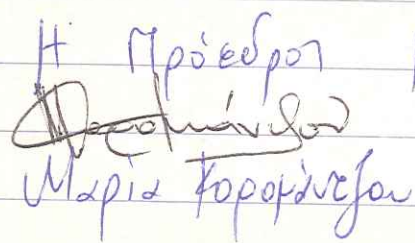 Η Πρόεδρος
Μαρία Κορομάντζου